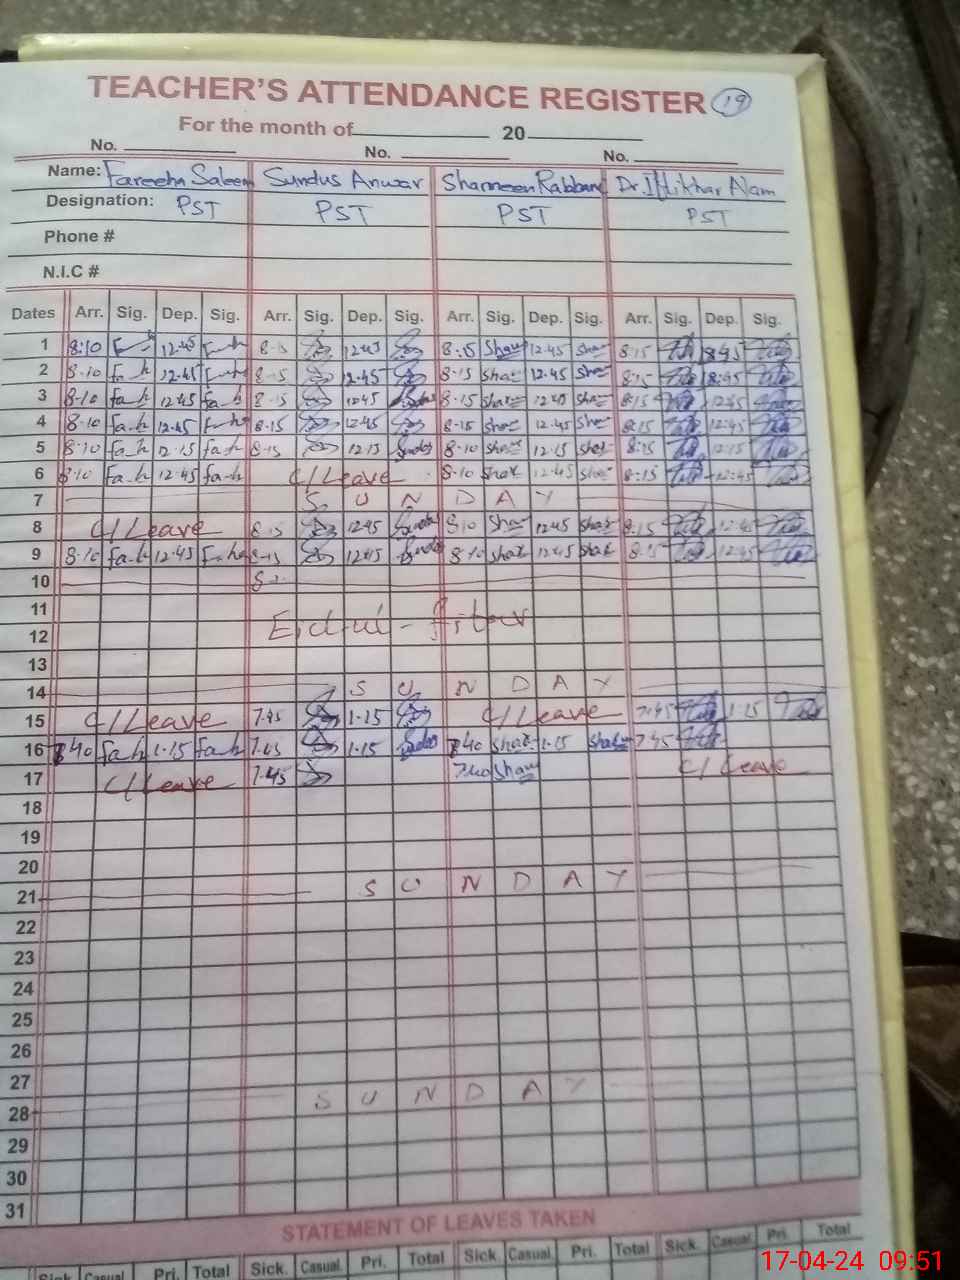 TEACHER'S ATTENDANCE REGISTER 19
For the month of 20
No. No. No.
Name: Fareeha Saleem Sundus Anwar Sharmeen Rabbani Dr. Iftikhar Alam
Designation: PST PST PST PST
Phone #
N.I.C #
Dates Arr. Sig. Dep. Sig. Arr. Sig. Dep. Sig. Arr. Sig. Dep. Sig. Arr. Sig. Dep. Sig.
1 8:10 12.45 8-15 12.45 8:15 12.45 8:15 8:45
2 8-10 12.45 8-15 12.45 8-15 12.45 8:15 8:45
3 8-10 fa-h 12.45 fa-h 8-15 12.45 8-15 12.45 8:15 12:45
4 8-10 fa-h 12.45 8-15 12.45 8-15 12.45 8:15 12:45
5 8:10 fa-h 12.15 fa-h 8-15 12.15 8-10 12.15 8:15 12:15
6 8-10 fa-h 12.45 fa-h C/Leave 8-10 12.45 8:15 12:45
7 S U N D A Y
8 C/Leave 8.15 12.45 8:10 12.45 8:15 12:45
9 8-10 fa-h 12.45 8-15 12.45 8-10 12.45 8:15 12:45
10
11
12 Eid-ul-fitar
13
14 S U N D A Y
15 C/Leave 7.45 1.15 C/Leave 7:45 1.15
16 7.40 fa-h 1.15 fa-h 7.45 1.15 7.40 1.15 7.45
17 C/Leave 7.45 7.40 C/Leave
18
19
20
21 S U N D A Y
22
23
24
25
26
27
28 S U N D A Y
29
30
31
STATEMENT OF LEAVES TAKEN
Sick. Casual Pri. Total Sick. Casual. Pri. Total Sick. Casual. Pri. Total Sick. Casual Pri. Total
17-04-24 09:51